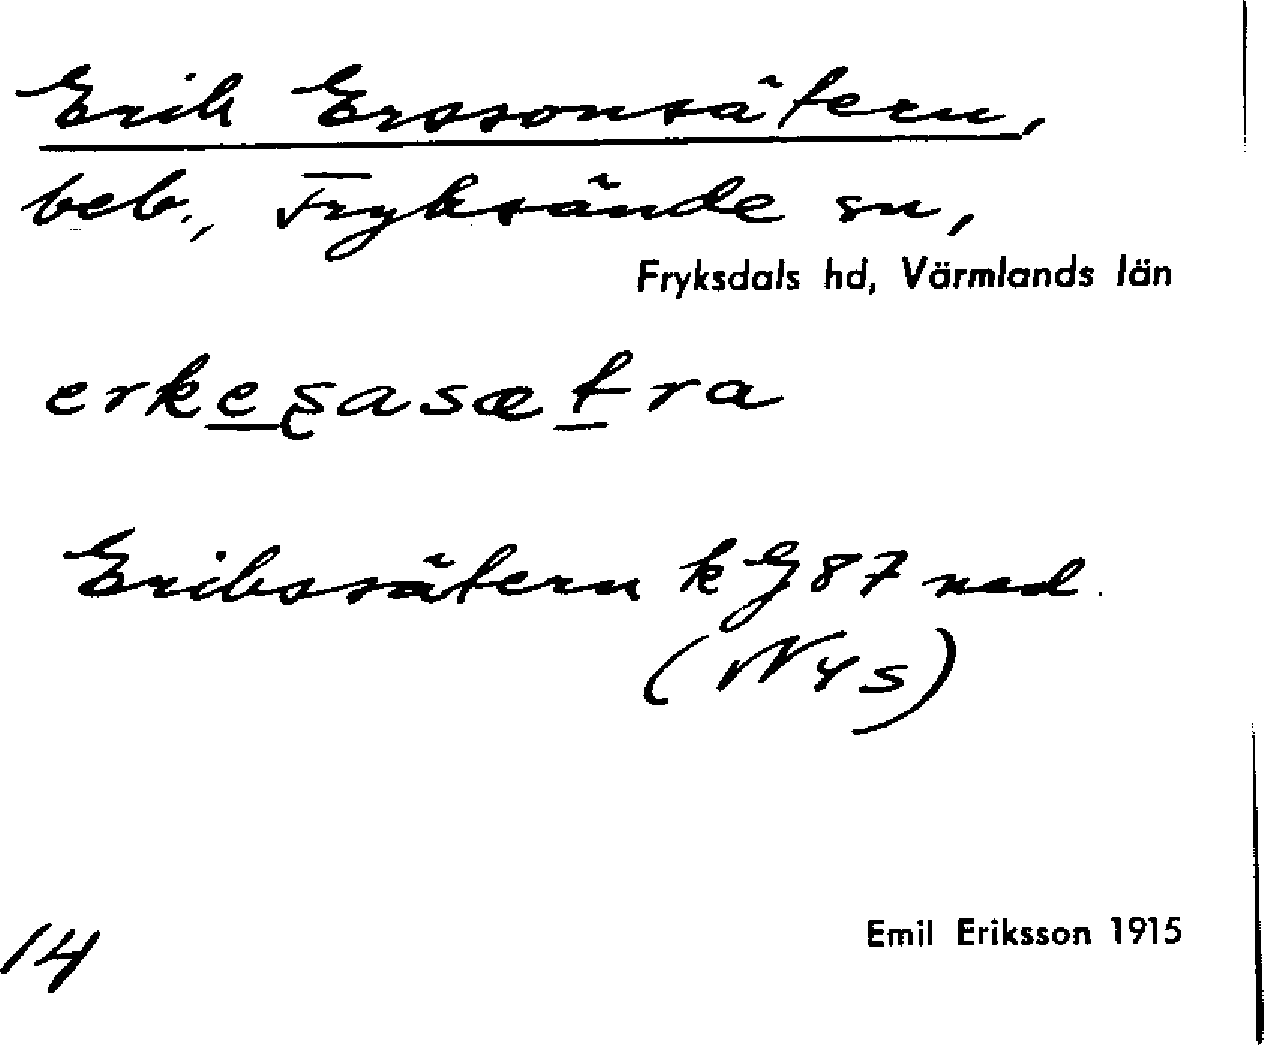 Erik Erssonsätern,
beb., Fryksände sn,
Fryksdals hd, Värmlands län
erkesasætra
Erikssätern k G 87 ned.
(Nys)
14
Emil Eriksson 1915